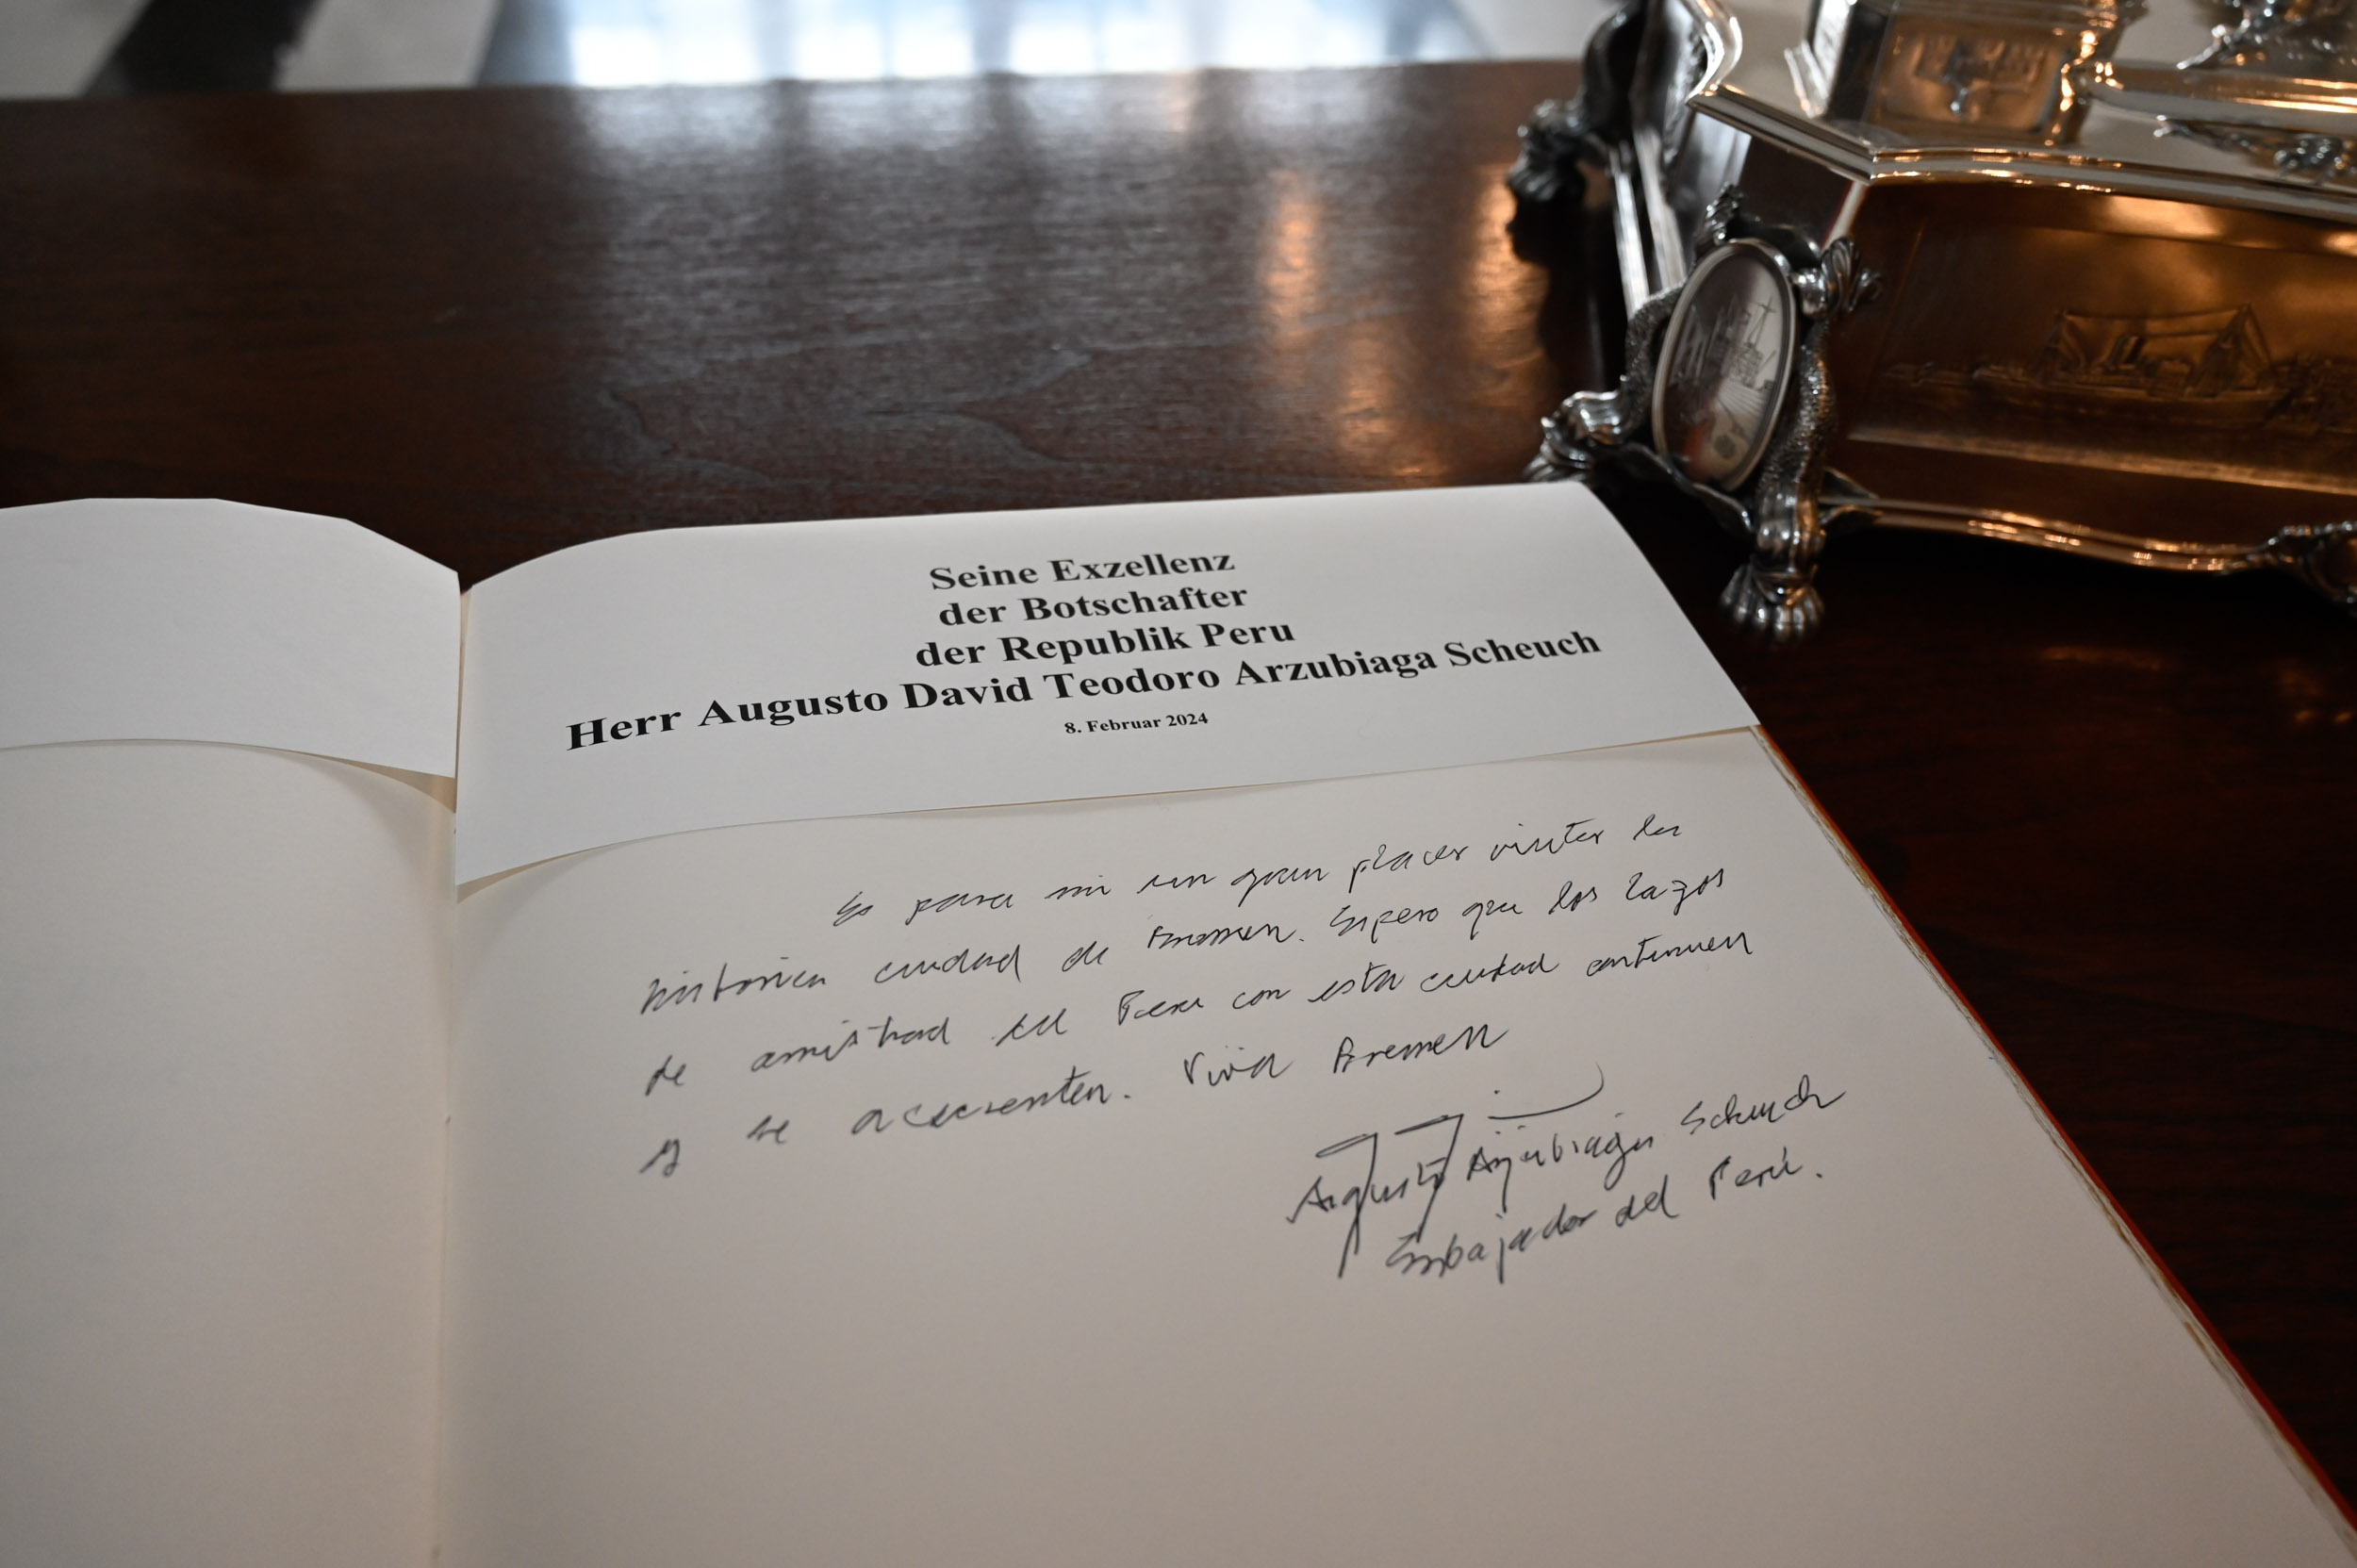 Seine Exzellenz
der Botschafter
der Republik Peru
Herr Augusto David Teodoro Arzubiaga Scheuch
8. Februar 2024
Es para mi un gran placer visitar la
historica ciudad de Bremen. Espero que los lazos
de amistad del Peru con esta ciudad continuen
y se acrecienten. Viva Bremen
Augusto Arzubiaga Scheuch
Embajador del Perú.